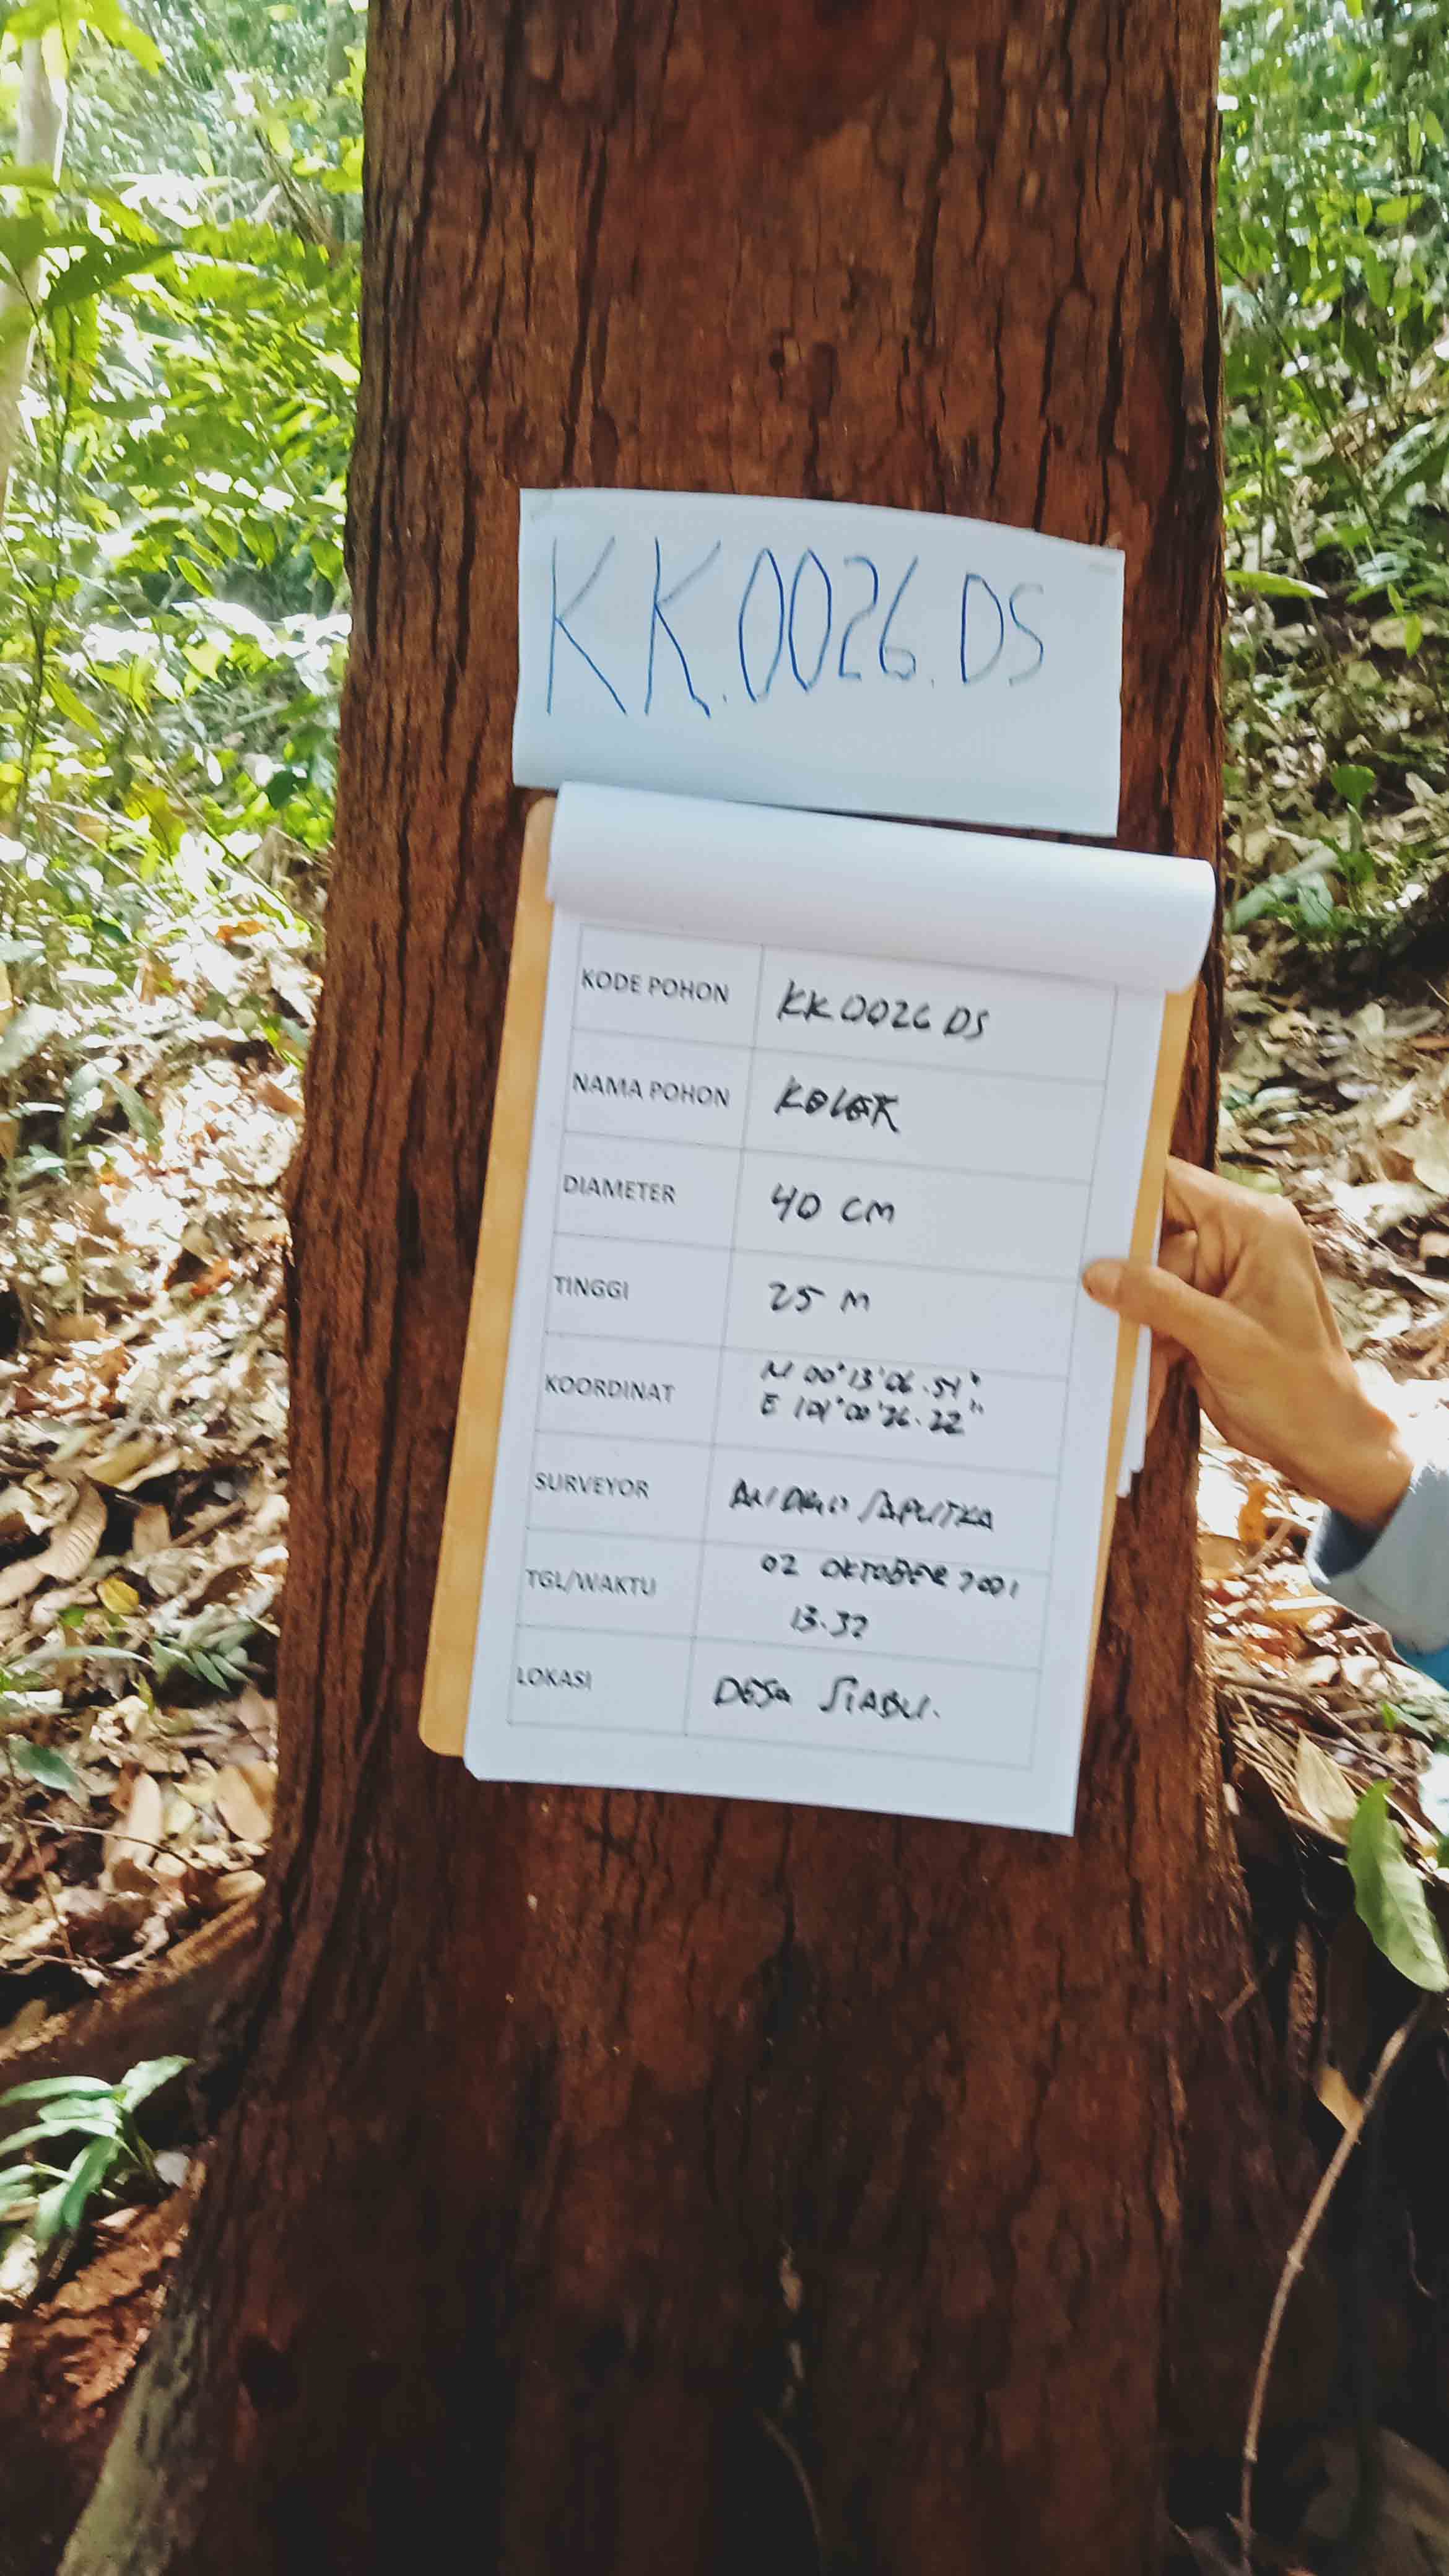 KK.0026.DS
KODE POHON KK 0026 DS
NAMA POHON KELEK
DIAMETER 40 CM
TINGGI 25 M
KOORDINAT N 00°13'06.54"
E 101°00'26.22"
SURVEYOR SAPUTRA
TGL/WAKTU 02 OKTOBER 2021
13.32
LOKASI DESA SIABU.